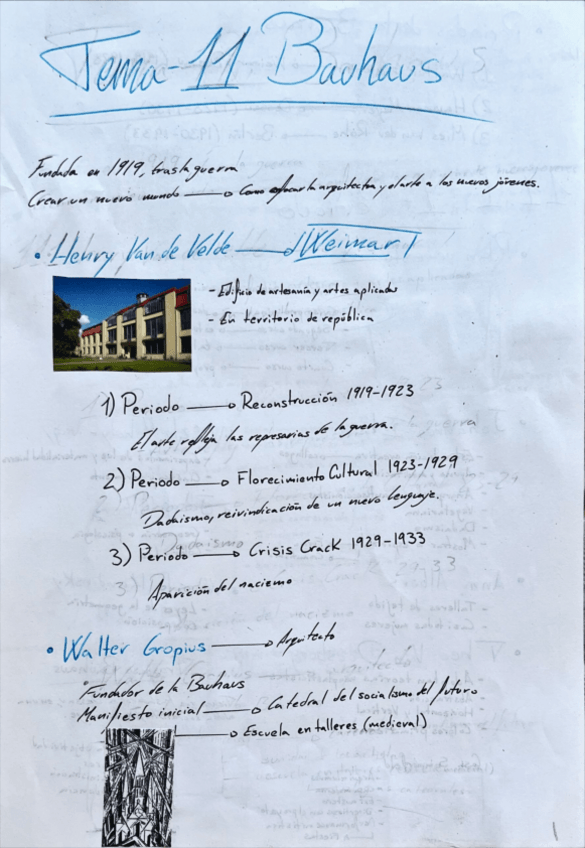 Tema-11 Bauhaus
Fundada en 1919, tras la guerra
Crear un nuevo mundo → Como enfocar la arquitectura y el arte a los nuevos jóvenes.
• Henry Van de Velde → Weimar
- Edificio de artesanía y artes aplicadas
- En territorio de república
1) Periodo → Reconstrucción 1919-1923
El arte refleja las represarias de la guerra.
2) Periodo → Florecimiento Cultural 1923-1929
Dadaismo, reivindicación de un nuevo lenguaje.
3) Periodo → Crisis Crack 1929-1933
Aparición del nacismo
• Walter Gropius → Arquitecto
Fundador de la Bauhaus
Manifiesto inicial → Catedral del socialismo del futuro
→ Escuela en talleres (medieval)
1